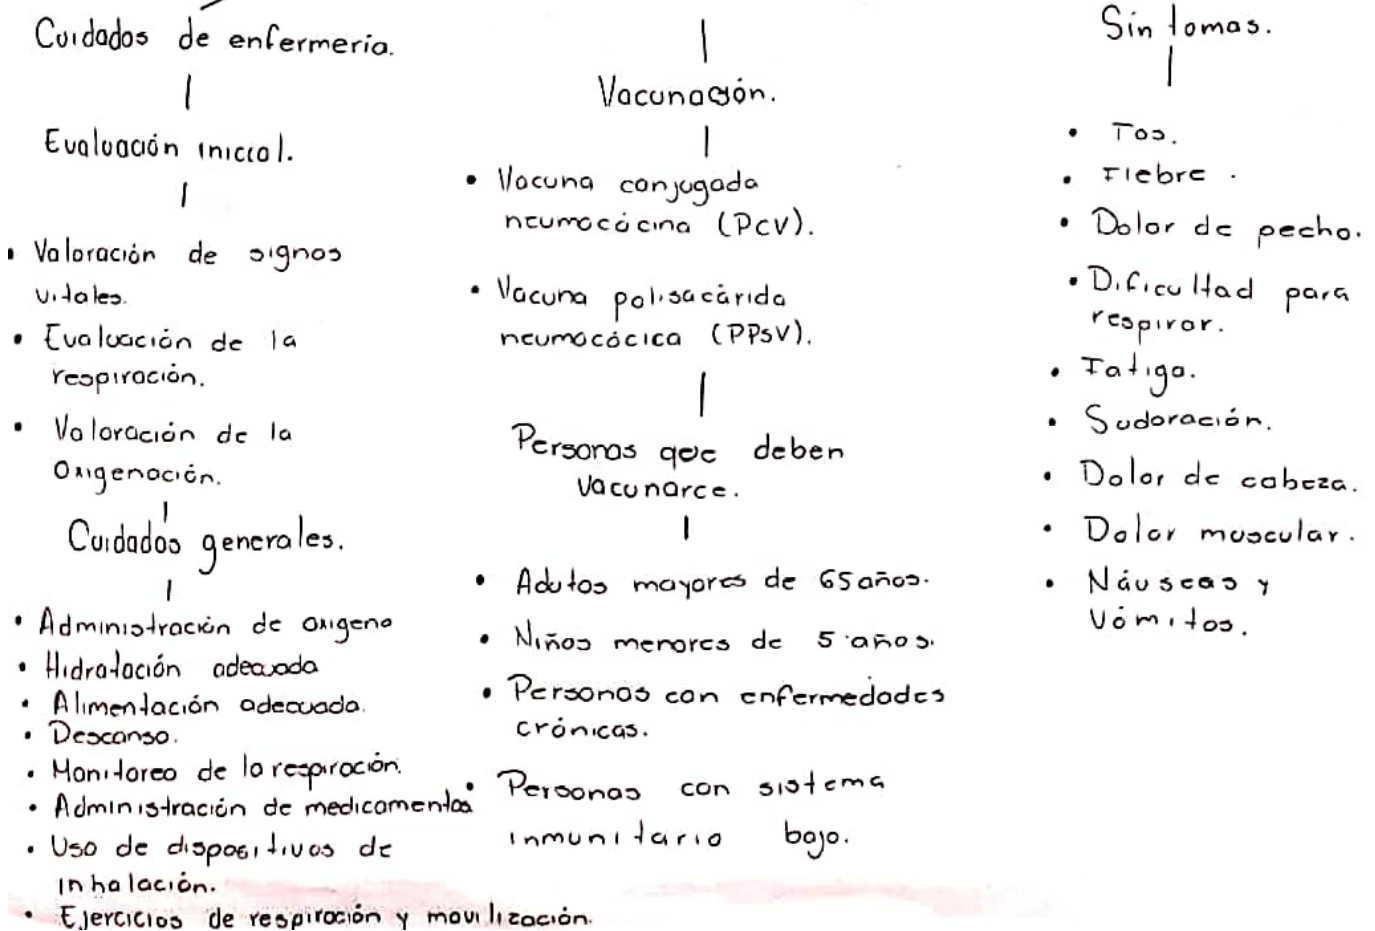 Cuidados de enfermería.
Evaluación inicial.
• Valoración de signos
vitales.
• Evaluación de la
respiración.
• Valoración de la
Oxigenación.
Cuidados generales.
• Administración de oxigeno
• Hidratación adecuada
• Alimentación adecuada.
• Descanso.
• Monitoreo de la respiración.
• Administración de medicamentos
• Uso de dispositivos de
inhalación.
• Ejercicios de respiración y movilización.
Vacunación.
• Vacuna conjugada
neumocócina (PCV).
• Vacuna polisacárida
neumocócica (PPSV).
Personas que deben
vacunarce.
• Adutos mayores de 65 años.
• Niños menores de 5 años.
• Personas con enfermedades
crónicas.
• Personas con sistema
inmunitario bajo.
Sintomas.
• Tos.
• Fiebre.
• Dolor de pecho.
• Dificultad para
respirar.
• Fatiga.
• Sudoración.
• Dolor de cabeza.
• Dolor muscular.
• Náuseas y
Vómitos.